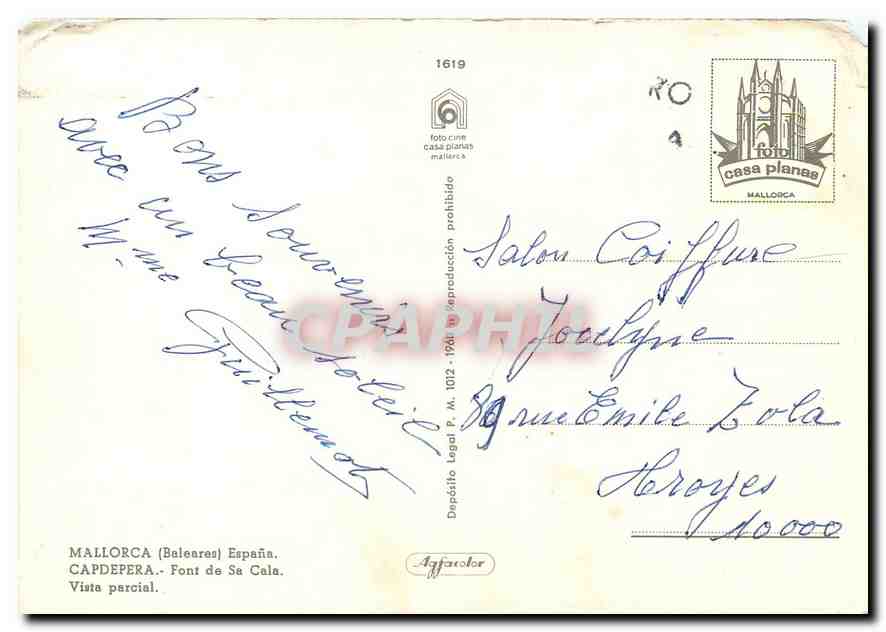 1619
foto cine
casa planas
mallorca
RO
foto
casa planas
MALLORCA
Bons souvenirs
avec un beau soleil
Mme Guillemot
Salon Coiffure
Jocelyne
89 rue Emile Zola
Troyes
10000
Depósito Legal P. M. 1012 - 196 Reproducción prohibido
CPAPHIL
MALLORCA (Baleares) España.
CAPDEPERA.- Font de Sa Cala.
Vista parcial.
Agfacolor